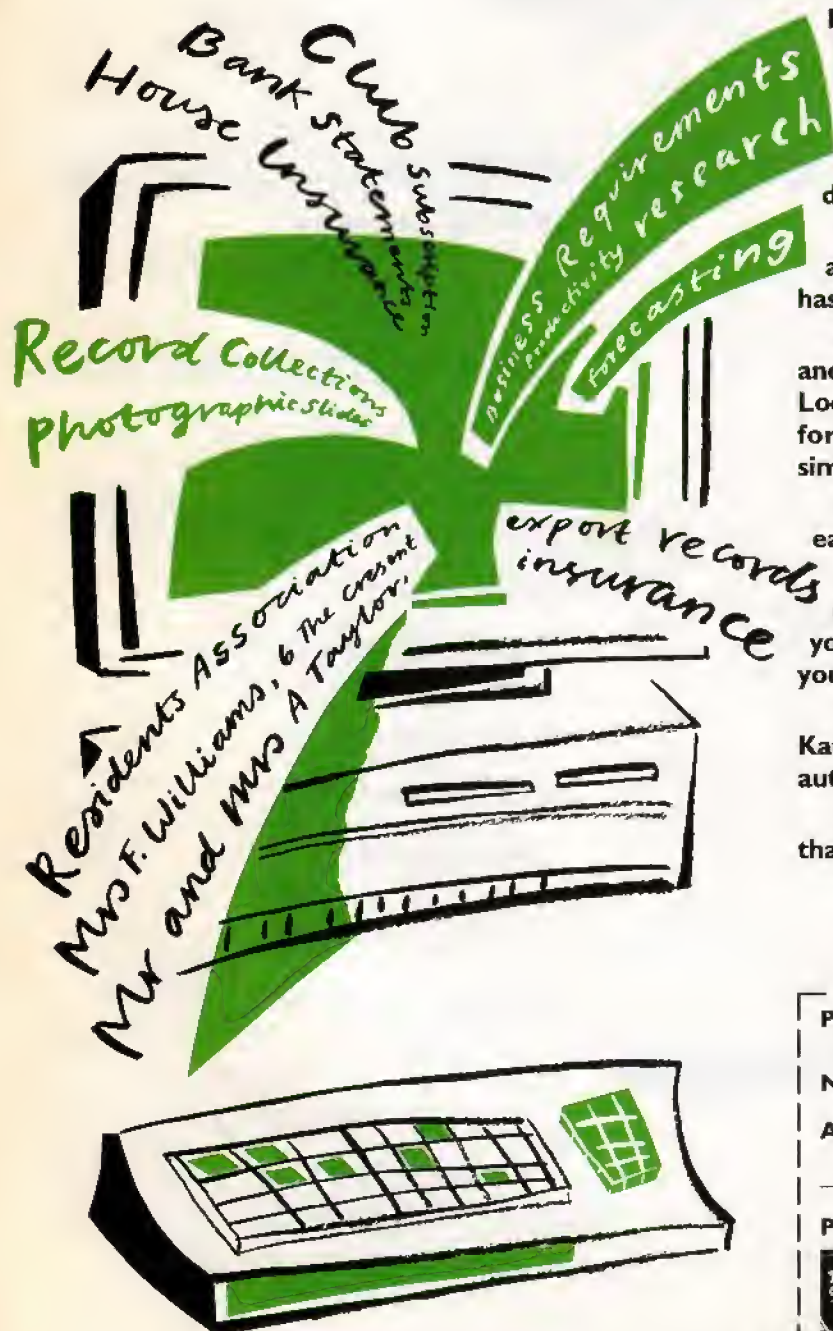 Club Subscription
Bank Statements
House Insurance
Business Requirements
Productivity research
forecasting
Record Collections
photographic slides
export records
insurance
Residents Association
Mrs F. Williams, 6 The Cresent
Mr and Mrs A Taylor,
d
a
has
and
Loc
for
sim
ea
yo
you
Ka
aut
tha
P
N
A
P